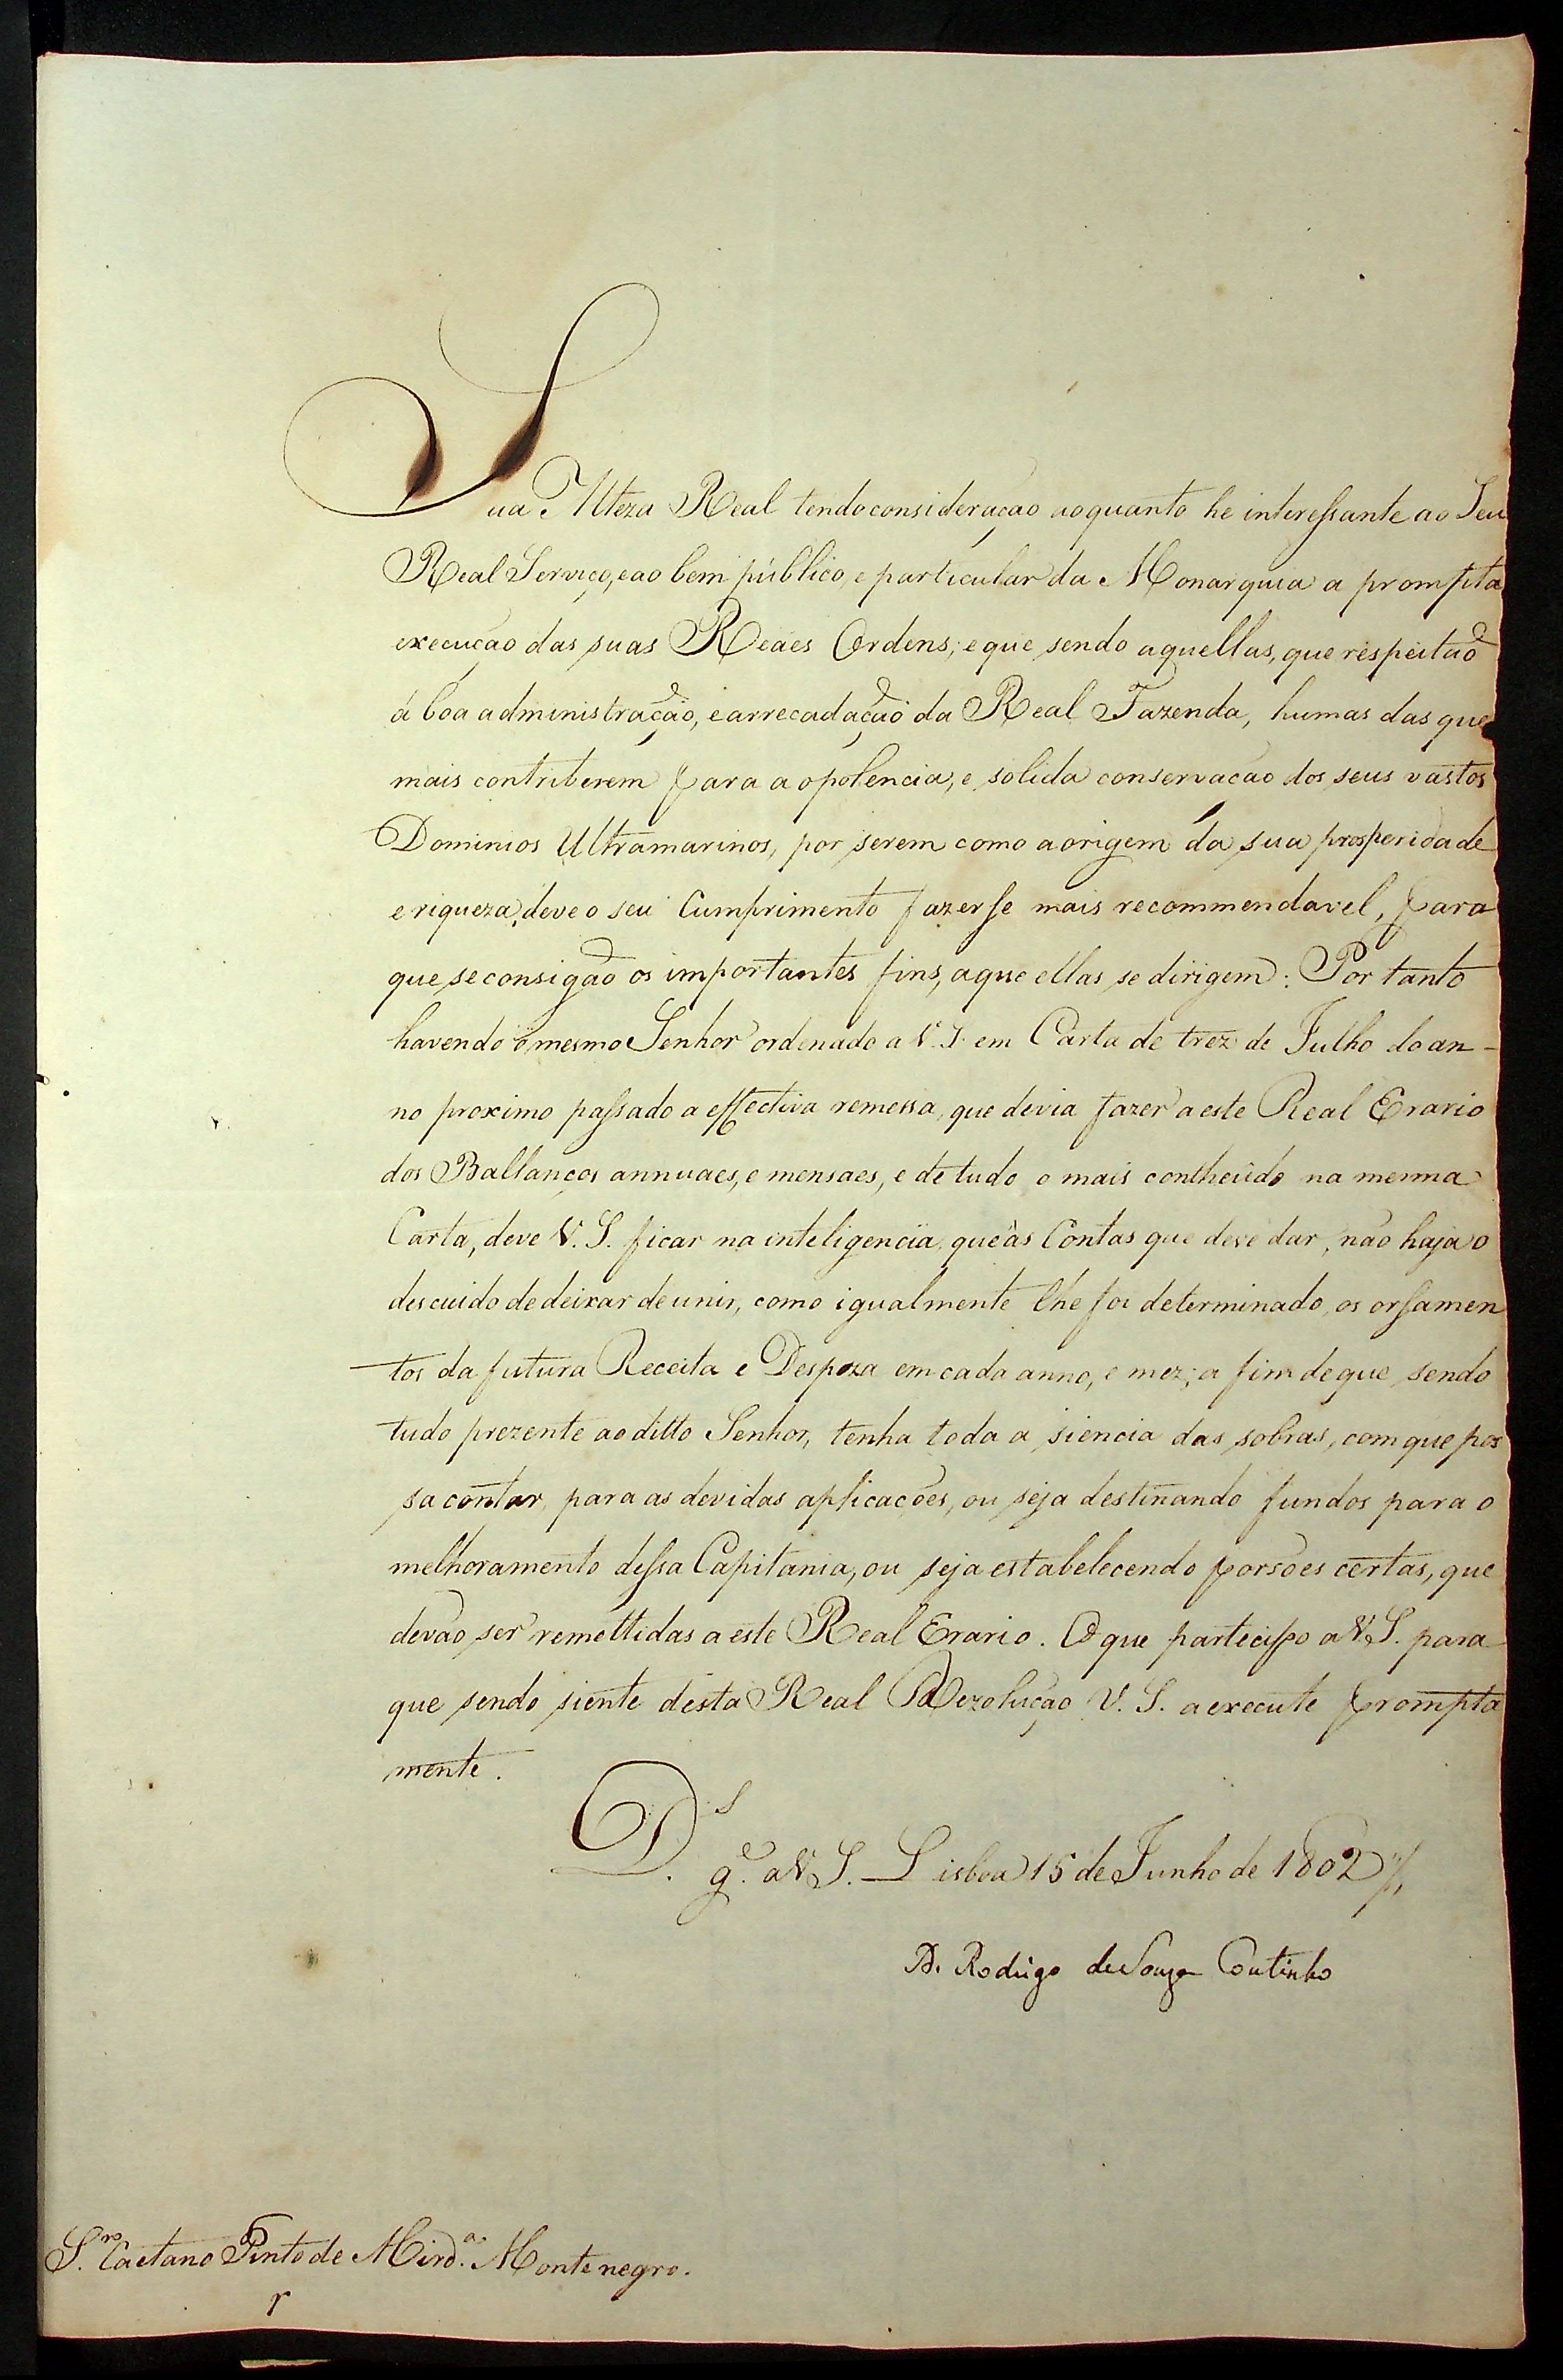 Sua Alteza Real tendo consideração ao quanto he interessante ao Seu
Real Serviço, e ao bem público, e particular da Monarquia a prompta
execução das suas Reaes Ordens; e que sendo aquellas, que respeitaõ
á boa administração, e arrecadação da Real Fazenda, humas das que
mais contriberem para a opolencia, e solida conservação dos seus vastos
Dominios Ultramarinos, por serem como a origem da sua prosperidade
e riqueza, deve o seu Cumprimento fazerse mais recommendavel, para
que se consigão os importantes fins, a que ellas se dirigem: Por tanto
havendo o mesmo Senhor ordenado a V. S. em Carta de trez de Julho do an-
no proximo passado a effectiva remessa, que devia fazer a este Real Erario
dos Ballanços annuaes, e mensaes, e de tudo o mais contheúdo na mesma
Carta, deve V. S. ficar na inteligencia, que às Contas que deve dar, não haja o
descuido de deixar de unir, como igualmente lhe foi determinado, os orsamen
tos da futura Receita e Despeza em cada anno, e mez; a fim de que sendo
tudo prezente ao ditto Senhor, tenha toda a siencia das sobras, com que pos
sa contar, para as devidas aplicações, ou seja destinando fundos para o
melhoramento dessa Capitania, ou seja estabelecendo porsões certas, que
devão ser remettidas a este Real Erario. O que participo a V. S. para
que sendo siente desta Real Rezolução V. S. a execute prompta
mente.
D.s g.e a V. S. Lisboa 15 de Junho de 1802
D. Rodrigo de Souza Coutinho
S.r Caetano Pinto de Mird.a Montenegro.